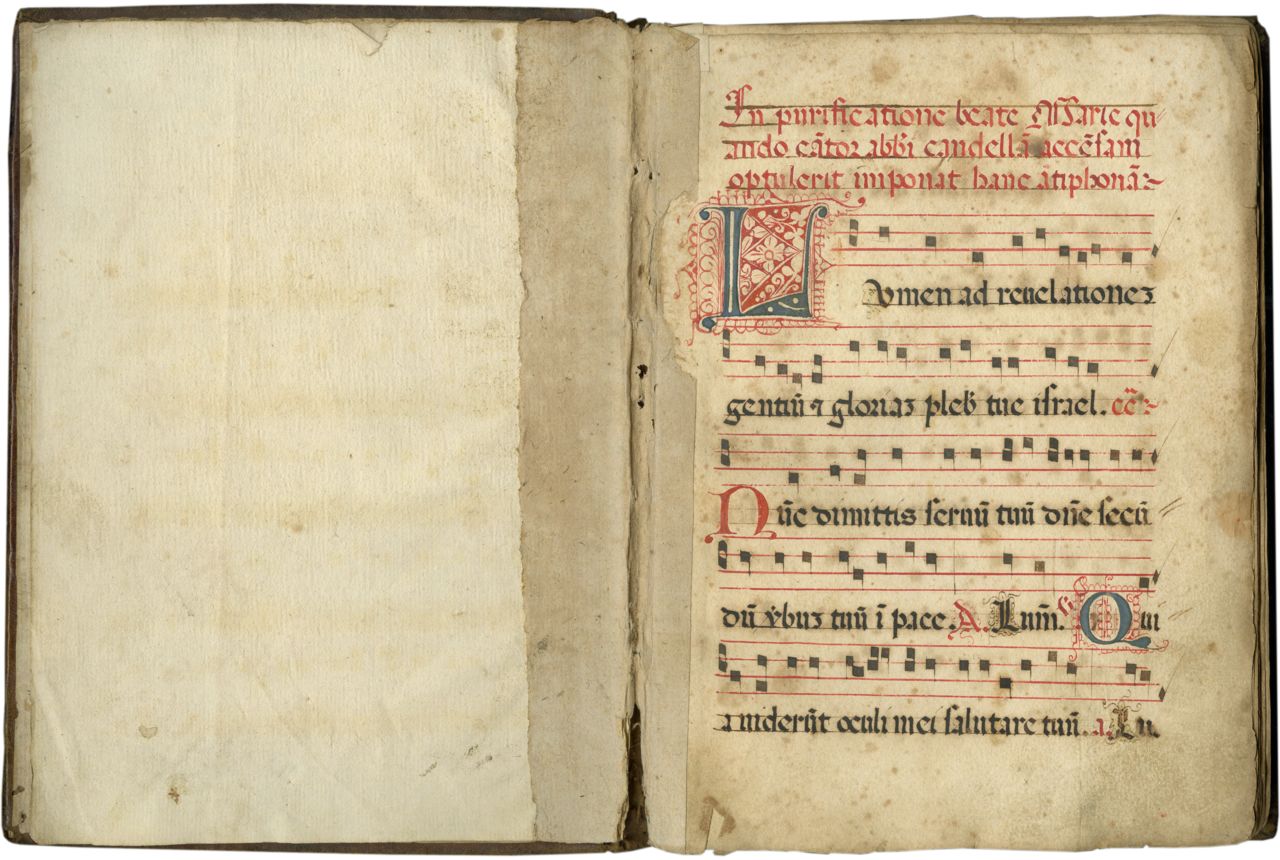 In purificatione beate Marie qu
ando cātor abbī candellā accēsam
optulerit imponat hanc ātiphonā
Lvmen ad reuelationeꝫ
gentiū ⁊ gloriaꝫ pleb̄ tue israel. 
Nūc dimittis seruū tuū dn̄e secū
dū v̄buꝫ tuū ī pace. A. Lum̄. Qui
a uiderūt oculi mei salutare tuū. a. Lu.